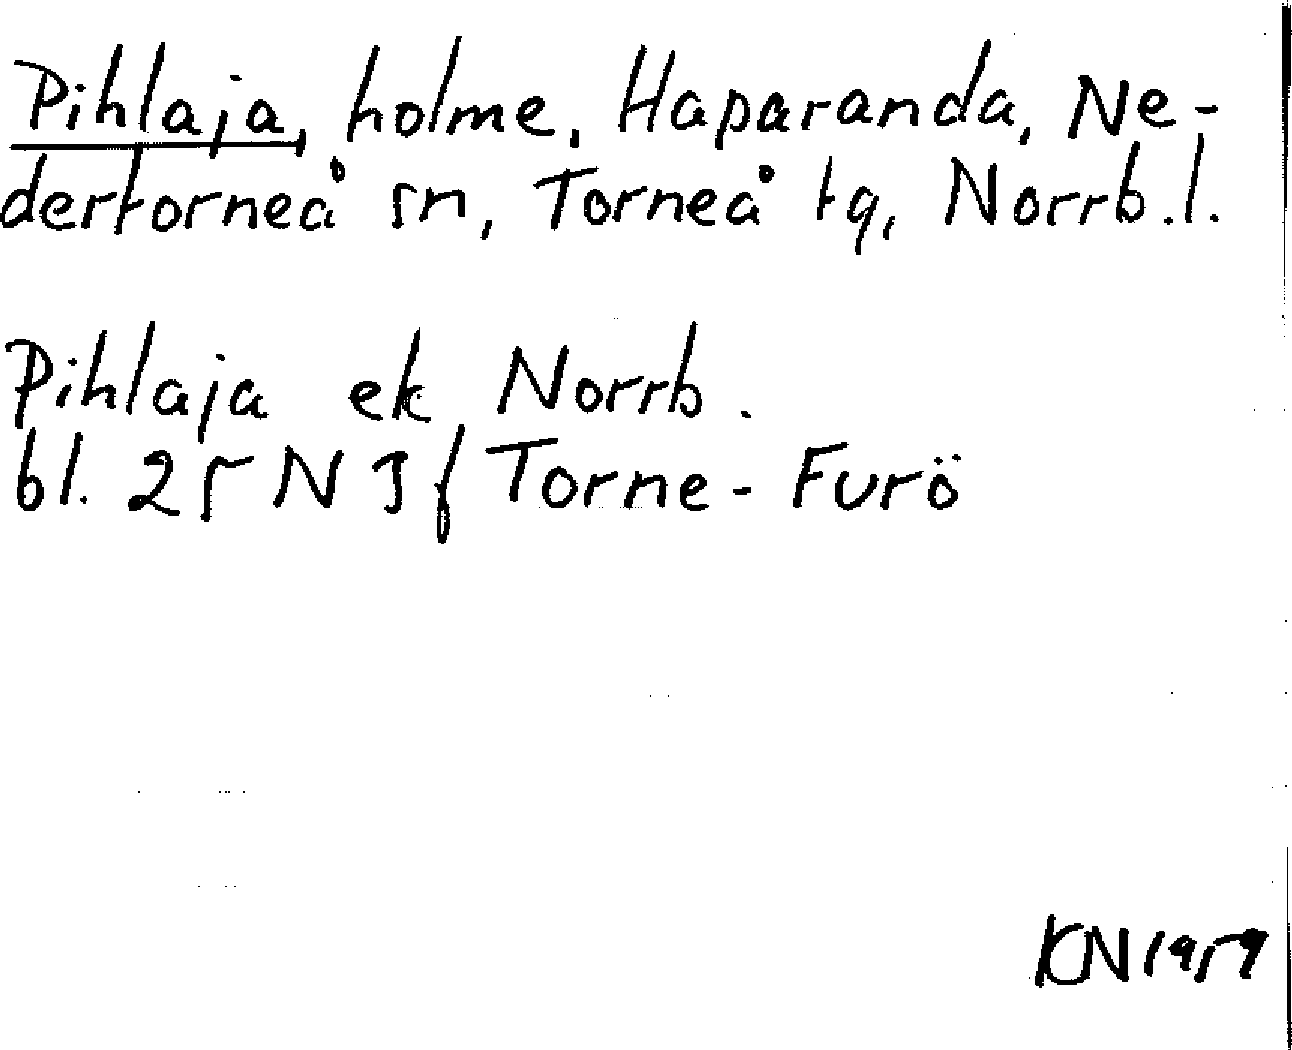 Pihlaja, holme, Haparanda, Ne-
dertorneå sn, Torneå tg, Norrb.l.
Pihlaja ek Norrb.
bl. 25 N 3 f Torne-Furö
KN 1959